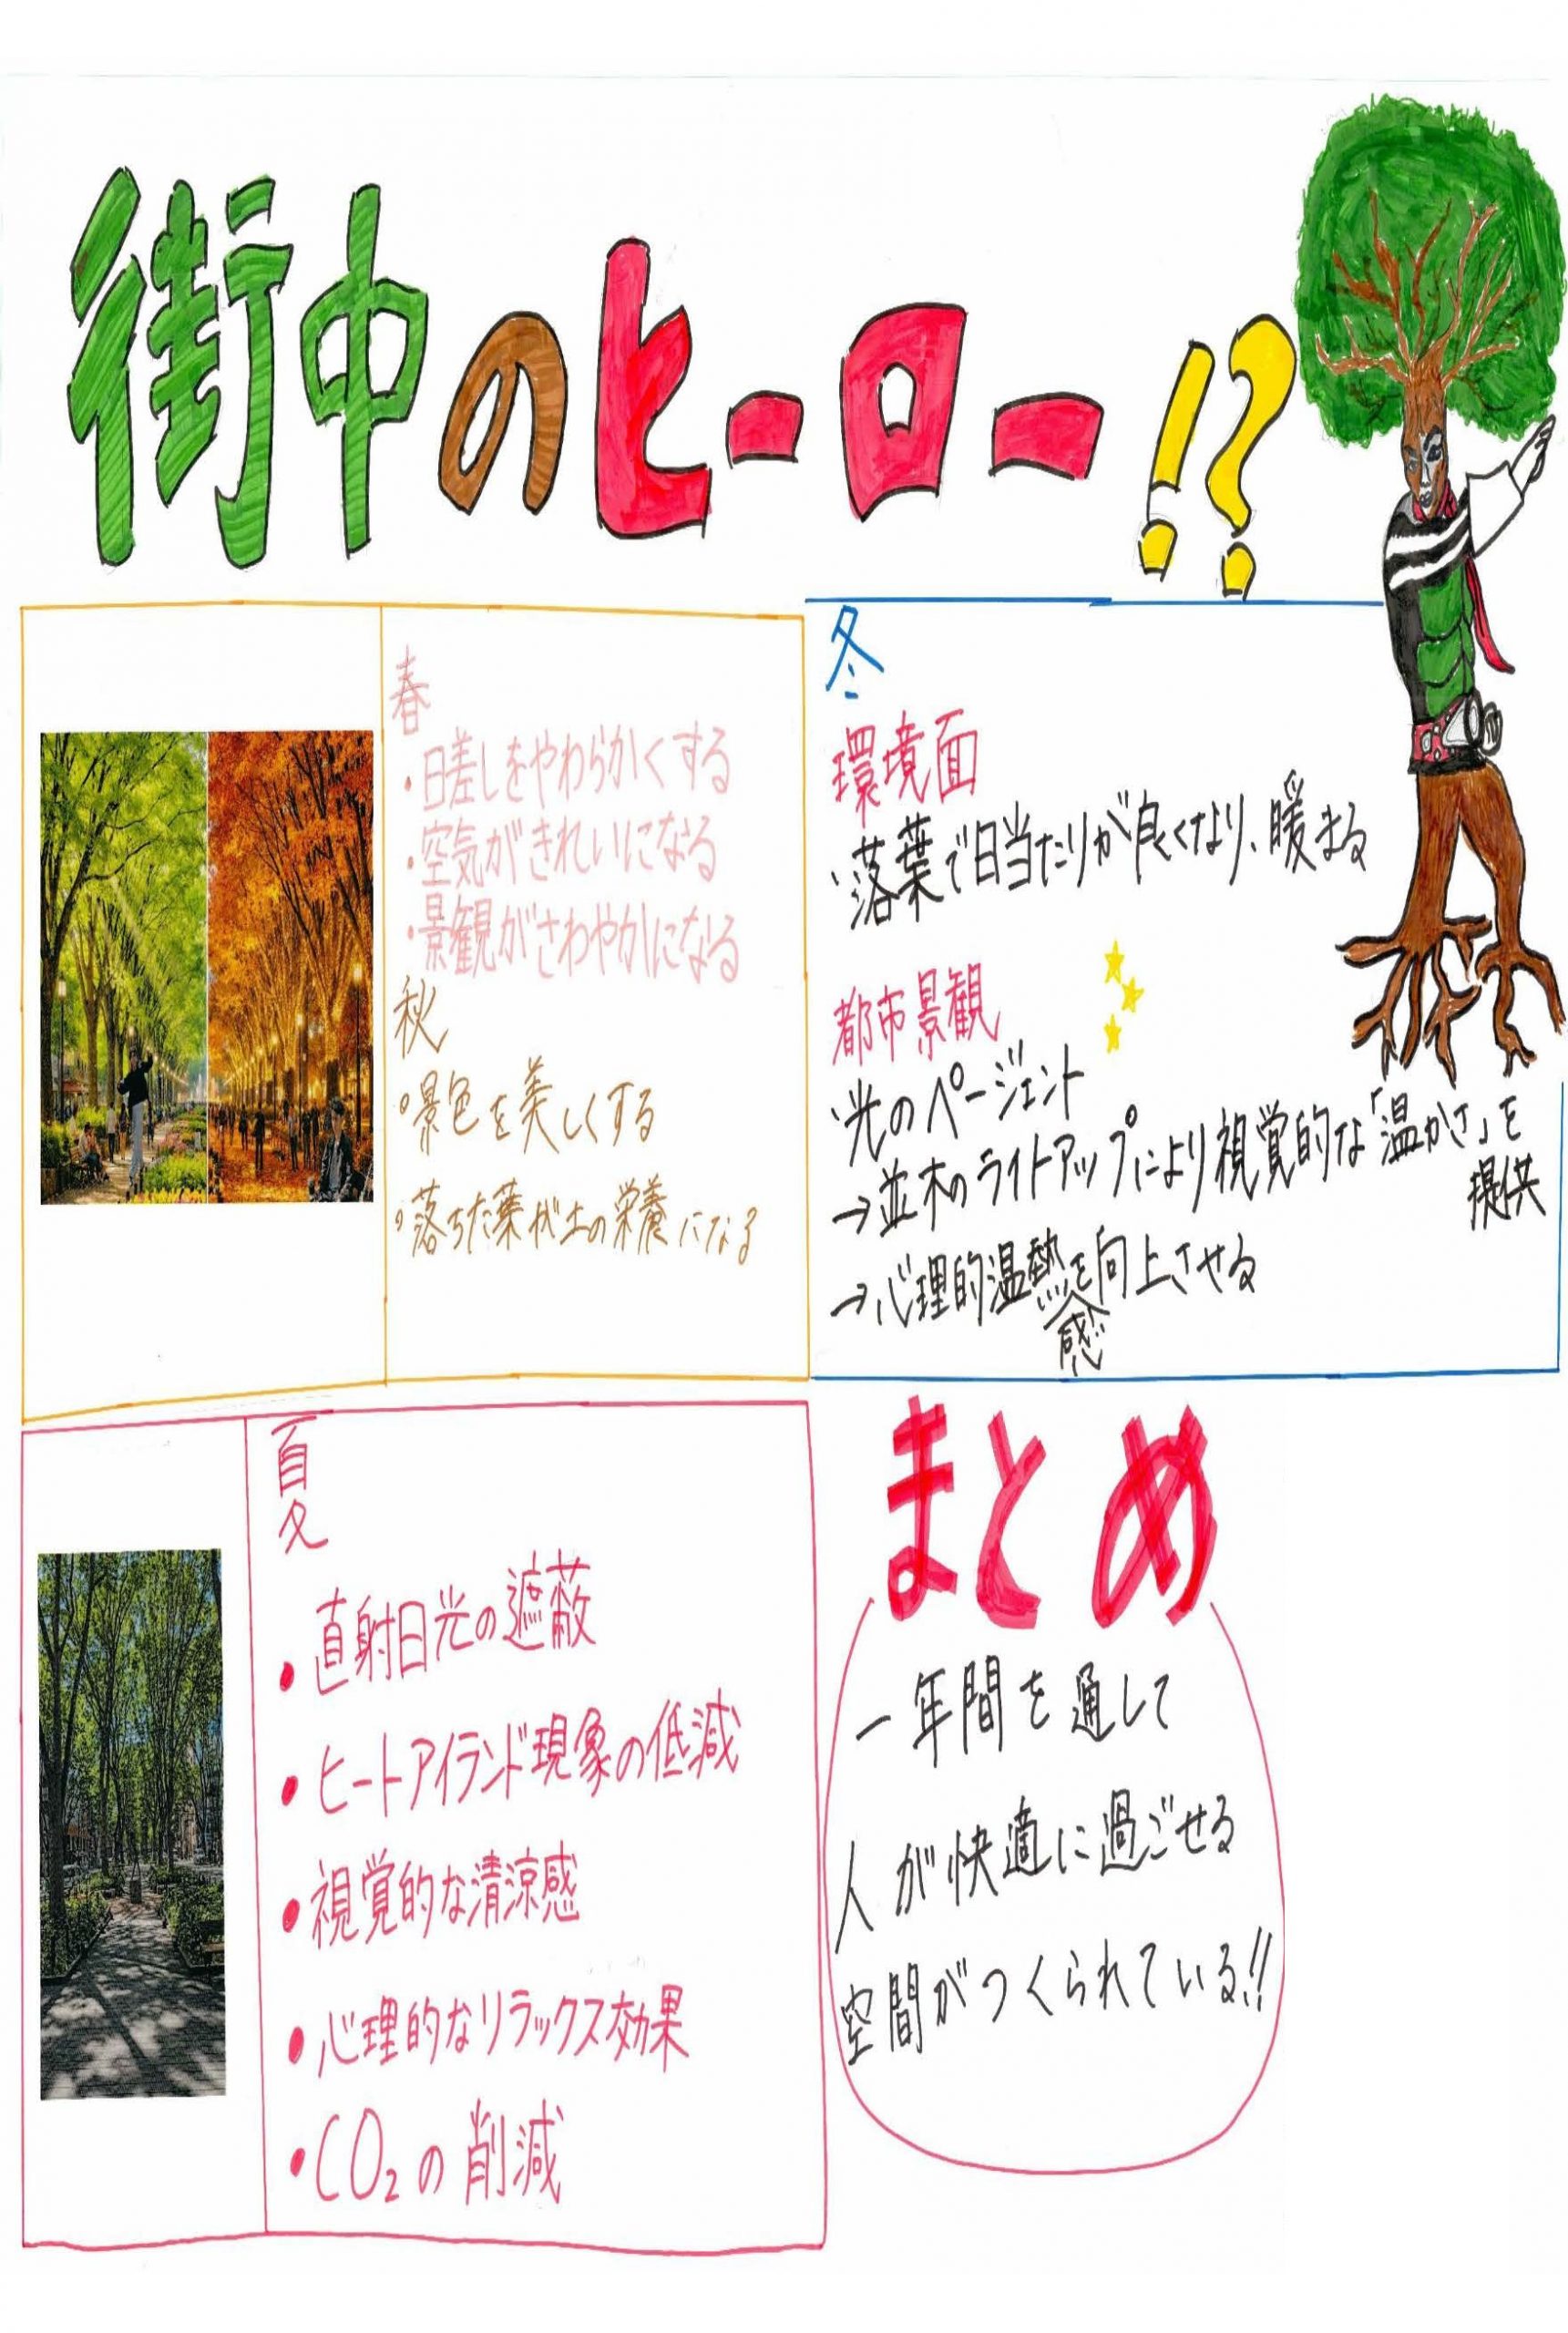 街中のヒーロー!?
春
・日差しをやわらかくする
・空気がきれいになる
・景観がさわやかになる
秋
・景色を美しくする
・落ちた葉が土の栄養になる
冬
環境面
・落葉で日当たりが良くなり、暖まる
都市景観
・光のページェント
→並木のライトアップにより視覚的な「温かさ」を
提供
→心理的温熱感を向上させる
夏
・直射日光の遮蔽
・ヒートアイランド現象の低減
・視覚的な清涼感
・心理的なリラックス効果
・CO₂の削減
まとめ
一年間を通して
人が快適に過ごせる
空間がつくられている!!